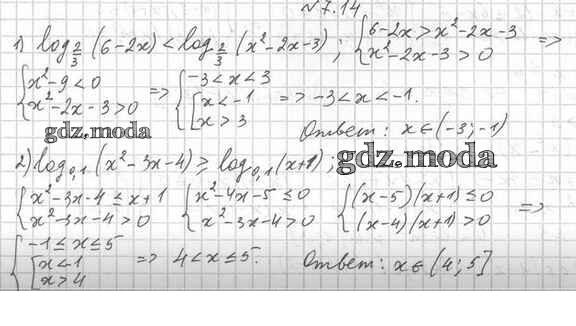 №7.14
1) log_{2/3} (6-2x) < log_{2/3} (x²-2x-3) ; { 6-2x > x²-2x-3 ; x²-2x-3 > 0 =>
{ x²-9<0 ; x²-2x-3>0 => { -3<x<3 ; [ x<-1 ; x>3 => -3<x<-1.
gdz.moda
Ответ: x∈(-3;-1)
2) log_{0,1} (x²-3x-4) ≥ log_{0,1} (x+1) ;
gdz.moda
{ x²-3x-4 ≤ x+1 ; x²-3x-4 > 0 { x²-4x-5 ≤ 0 ; x²-3x-4>0 { (x-5)(x+1) ≤ 0 ; (x-4)(x+1) > 0 =>
{ -1≤x≤5 ; [ x<-1 ; x>4 => 4<x≤5. Ответ: x∈(4;5]